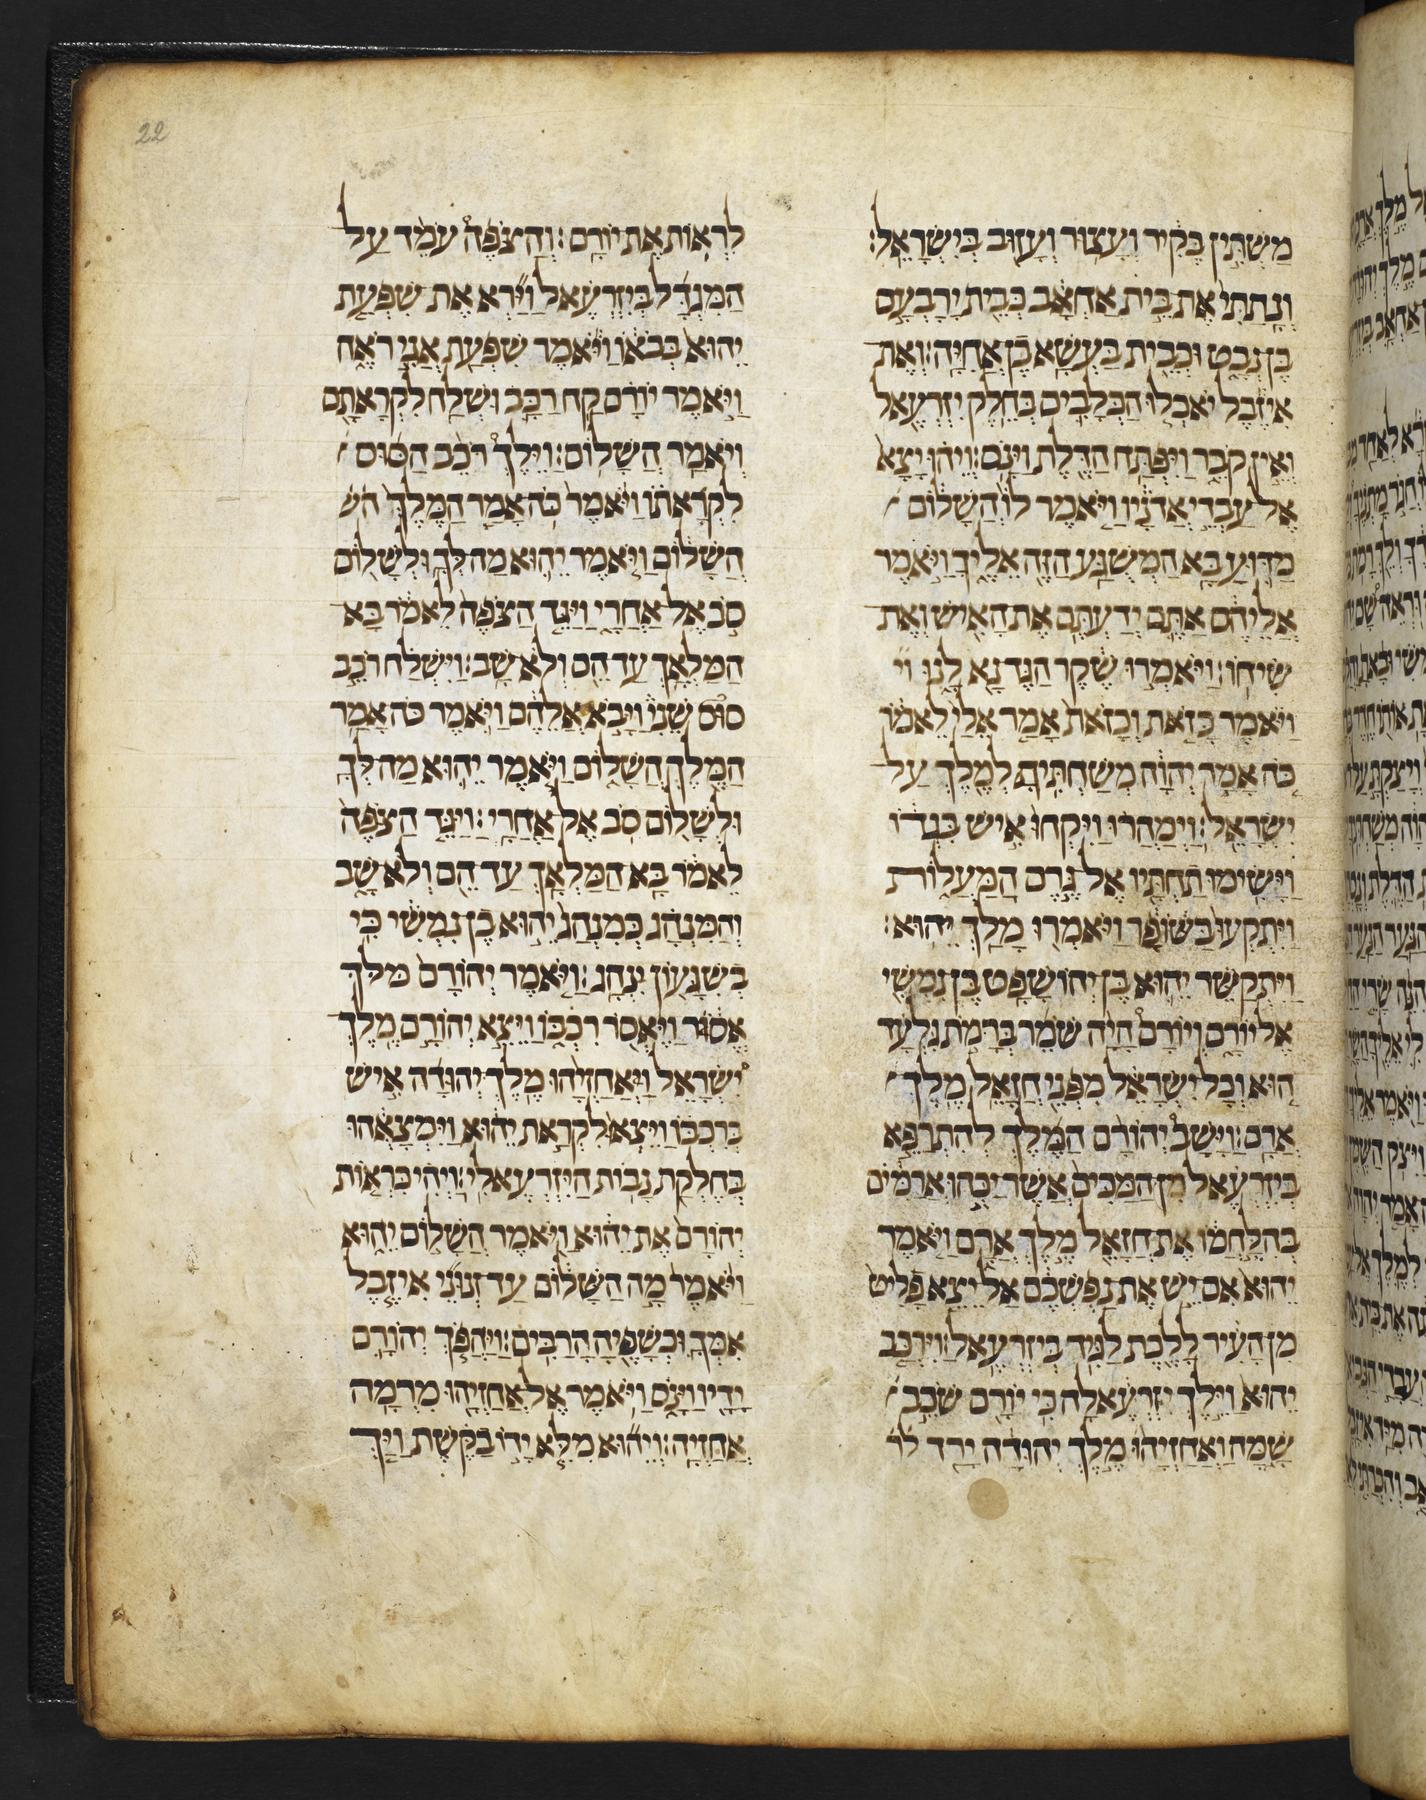 22
משתין בקיר ועצור ועזוב בישראל׃
ונתתי את בית אחאב כבית ירבעם
בן נבט וכבית בעשא בן אחיה׃ ואת
איזבל יאכלו הכלבים בחלק יזרעאל
ואין קבר ויפתח הדלת וינס׃ ויהוא יצא
אל עבדי אדניו ויאמר לו השלום
מדוע בא המשגע הזה אליך ויאמר
אליהם אתם ידעתם את האיש ואת
שיחו׃ ויאמרו שקר הגד נא לנו וי
ויאמר כזאת וכזאת אמר אלי לאמר
כה אמר יהוה משחתיך למלך על
ישראל׃ וימהרו ויקחו איש בגדו
וישימו תחתיו אל גרם המעלות
ויתקעו בשופר ויאמרו מלך יהוא׃
ויתקשר יהוא בן יהושפט בן נמשי
אל יורם ויורם היה שמר ברמת גלעד
הוא וכל ישראל מפני חזאל מלך
ארם׃ וישב יהורם המלך להתרפא
ביזרעאל מן המכים אשר יכהו ארמים
בהלחמו את חזאל מלך ארם ויאמר
יהוא אם יש את נפשכם אל יצא פליט
מן העיר ללכת לגיד ביזרעאל׃ וירכב
יהוא וילך יזרעאלה כי יורם שכב
שמה ואחזיהו מלך יהודה ירד לר
לראות את יורם׃ והצפה עמד על
המגדל ביזרעאל וירא את שפעת
יהוא בבאו ויאמר שפעת אני ראה
ויאמר יורם קח רכב ושלח לקראתם
ויאמר השלום׃ וילך רכב הסוס
לקראתו ויאמר כה אמר המלך הש
השלום ויאמר יהוא מה לך ולשלום
סב אל אחרי ויגד הצפה לאמר בא
המלאך עד הם ולא שב׃ וישלח רכב
סוס שני ויבא אלהם ויאמר כה אמר
המלך השלום ויאמר יהוא מה לך
ולשלום סב אל אחרי׃ ויגד הצפה
לאמר בא המלאך עד הם ולא שב
והמנהג כמנהג יהוא בן נמשי כי
בשגעון ינהג׃ ויאמר יהורם מלך
אסור ויאסר רכבו ויצא יהורם מלך
ישראל ואחזיהו מלך יהודה איש
ברכבו ויצאו לקראת יהוא וימצאהו
בחלקת נבות היזרעאלי׃ ויהי כראות
יהורם את יהוא ויאמר השלום יהוא
ויאמר מה השלום עד זנוני איזבל
אמך וכשפיה הרבים׃ ויהפך יהורם
ידיו וינס ויאמר אל אחזיהו מרמה
אחזיה׃ ויהוא מלא ידו בקשת ויך